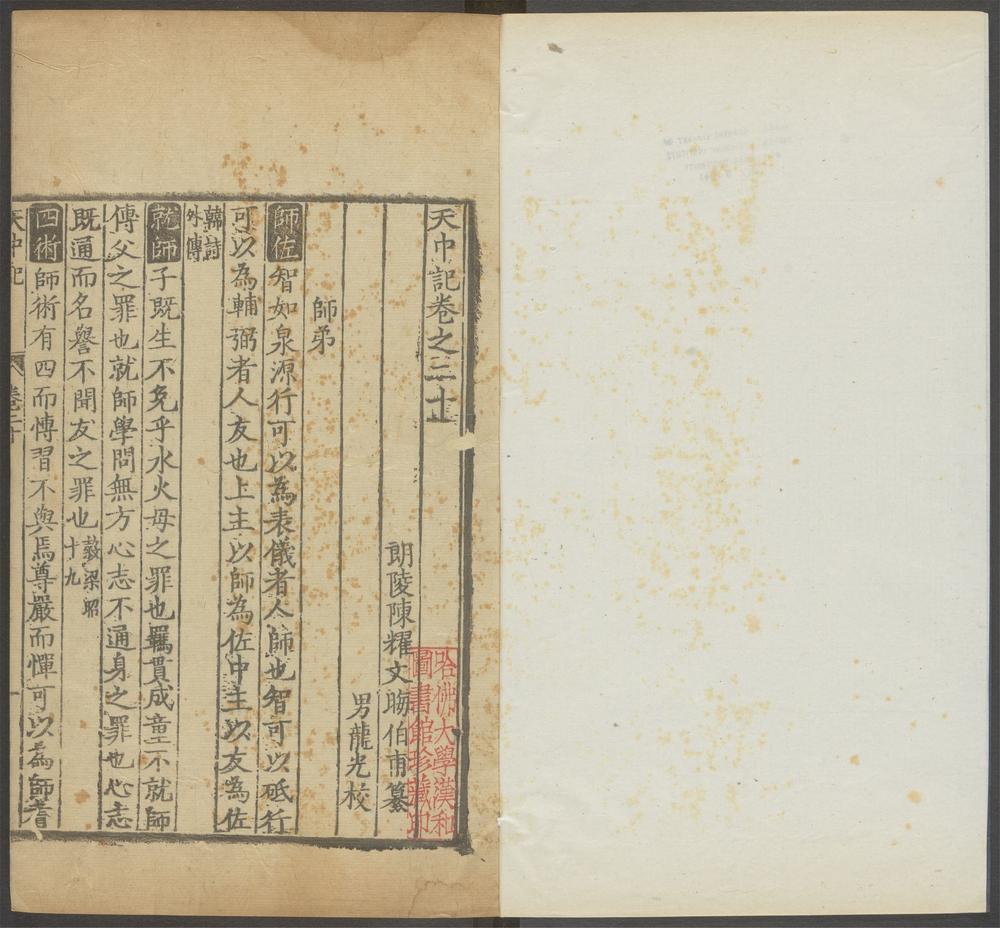 天中記卷之二十
朗陵陳耀文晦伯甫纂
男龍光校
師弟
師佐智如泉源行可以為表儀者人師也智可以砥行
可以為輔弼者人友也上主以師為佐中主以友為佐
韓詩
外傳
就師子既生不免乎水火母之罪也羈貫成童不就師
傅父之罪也就師學問無方心志不通身之罪也心志
既通而名譽不聞友之罪也穀梁昭
十九
四術師術有四而博習不與焉尊嚴而憚可以為師耆
天中記
卷二十
一
哈佛大學漢和
圖書館珍藏印